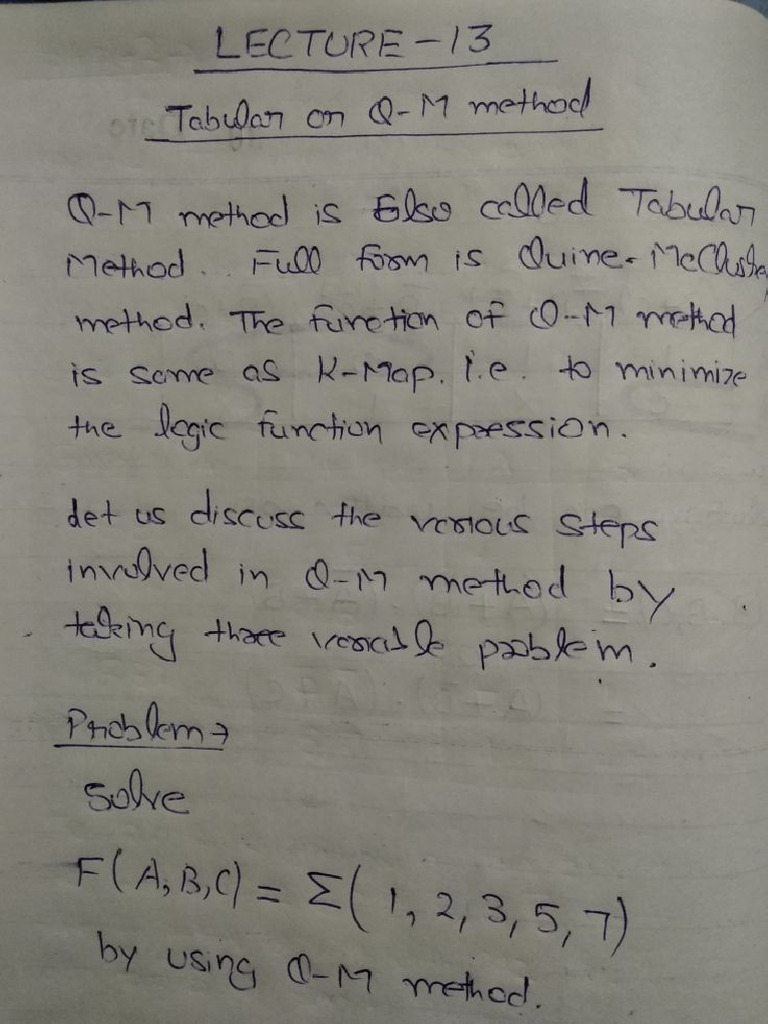 LECTURE-13
Tabular or Q-M method
Q-M method is also called Tabular
Method. Full form is Quine-McCluske
method. The function of Q-M method
is same as K-Map. i.e. to minimize
the logic function expression.
Let us discuss the various steps
involved in Q-M method by
taking three variable problem.
Problem→
Solve
F(A,B,C) = Σ(1,2,3,5,7)
by using Q-M method.